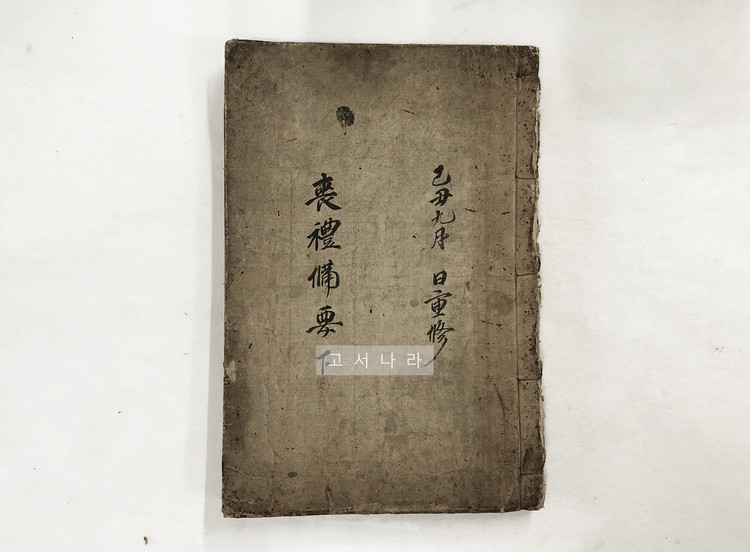 己丑九月 日重修
喪禮備要
고서나라